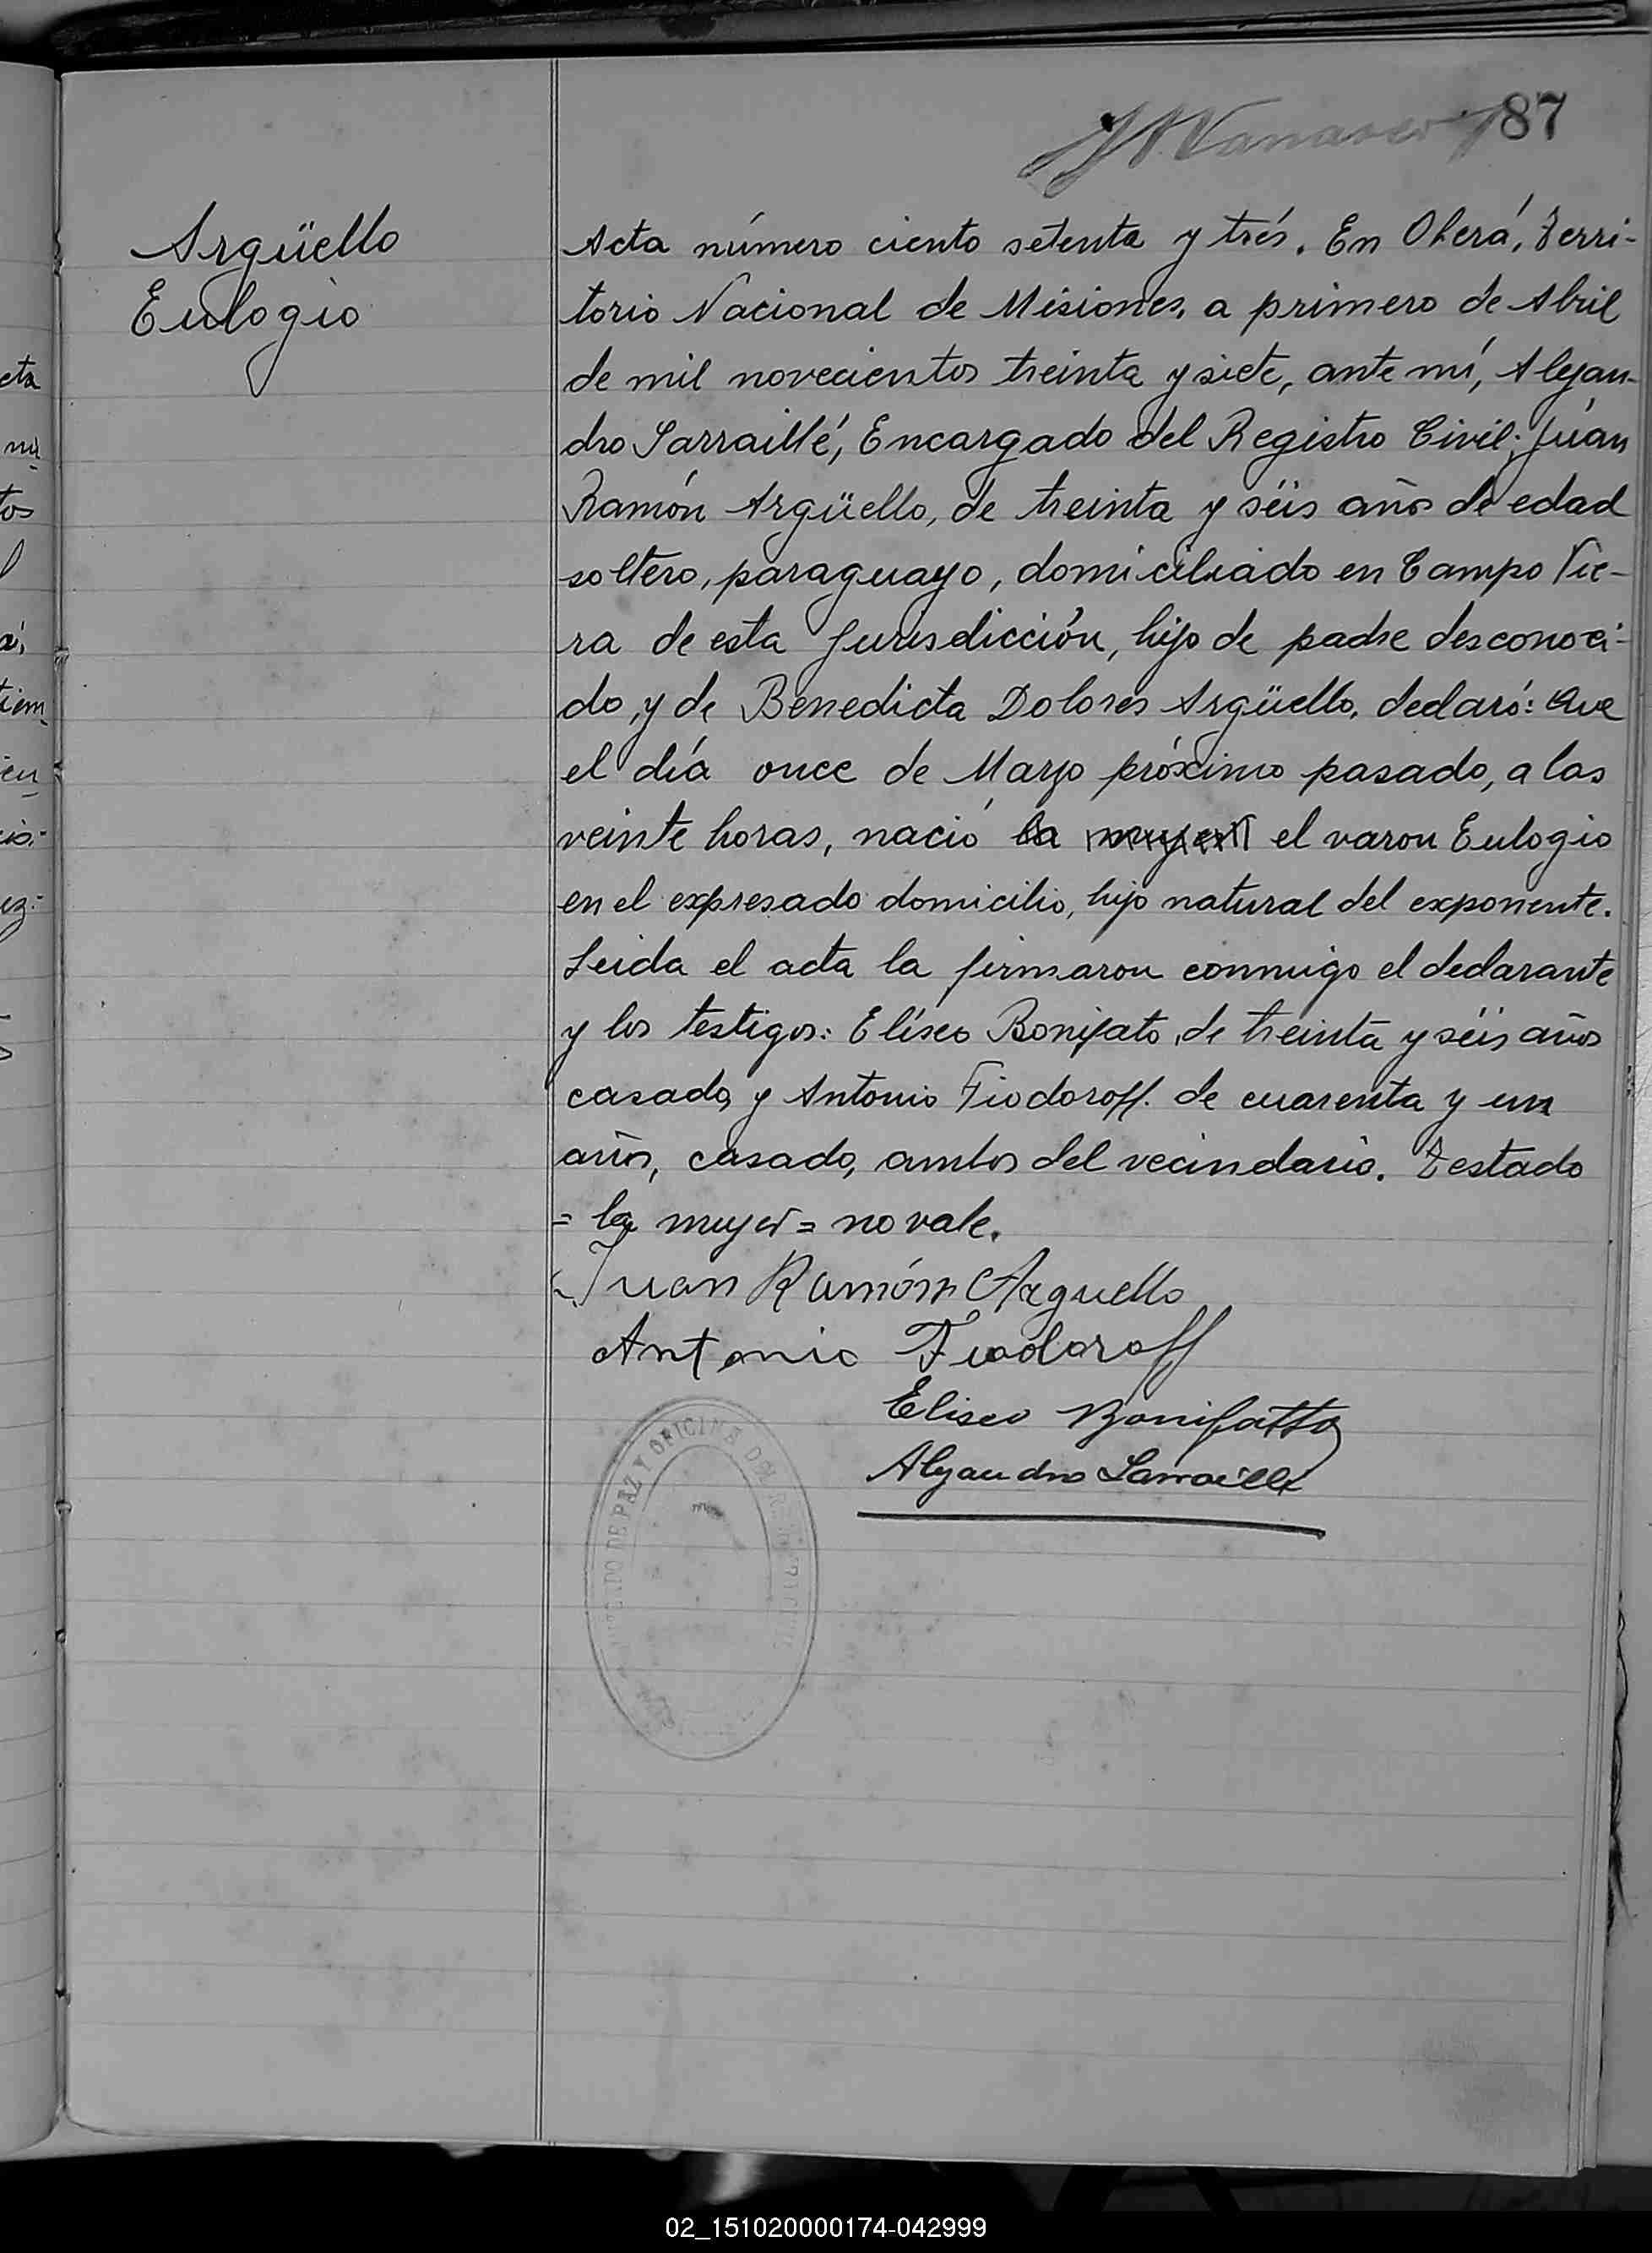 87
Argüello
Eulogio
Acta número ciento setenta y trés. En Oberá, Terri-
torio Nacional de Misiones, a primero de Abril
de mil novecientos treinta y siete, ante mí, Alejan-
dro Sarraillé, Encargado del Registro Civil; Juan
Ramón Argüello, de treinta y séis años de edad
soltero, paraguayo, domiciliado en Campo Vie-
ra de esta Jurisdicción, hijo de padre desconoci-
do, y de Benedicta Dolores Argüello, declaró: Que
el día once de Marzo próximo pasado, a las
veinte horas, nació la mujer el varon Eulogio
en el expresado domicilio, hijo natural del exponente.
Leida el acta la firmaron conmigo el declarante
y los testigos: Elíseo Bonifato, de treinta y séis años
casado, y Antonio Fiodoroff. de cuarenta y un
años, casado, ambos del vecindario. Testado
= la mujer = no vale.
Juan Ramón Arguello
Antonio Fiodoroff
Eliseo Bonifatto
Alejandro Sarraillé
JUZGADO DE PAZ Y OFICINA DEL
eta
mi
tos
l
a,
tiem
en
io:
ez:
02_151020000174-042999